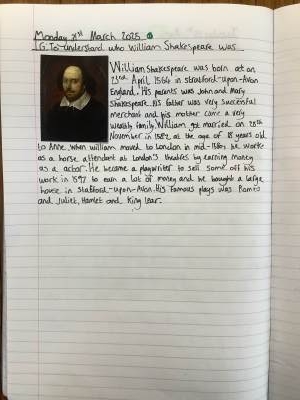 Monday 31st March 2025
LG: To understand who William Shakespeare was
William Shakespeare was born at on
23rd April 1564 in stratford-upon-Avon
England. His parents was John and Mary
Shakespeare. His father was very successful
merchant and his mother came a very
wealthy family. William got married on 28th
November in 1582 at the age of 18 years old
to Anne. when william moved to London in mid-1880s he works
as a horse attendant at London's theatres by earning money
as a actor. He became a playwriter to sell some off his
work in 1597 to earn a lot of money and he bought a large
house in statford-upon-Avon. His Famous plays was Romeo
and Juliet, Hamlet and King Lear.